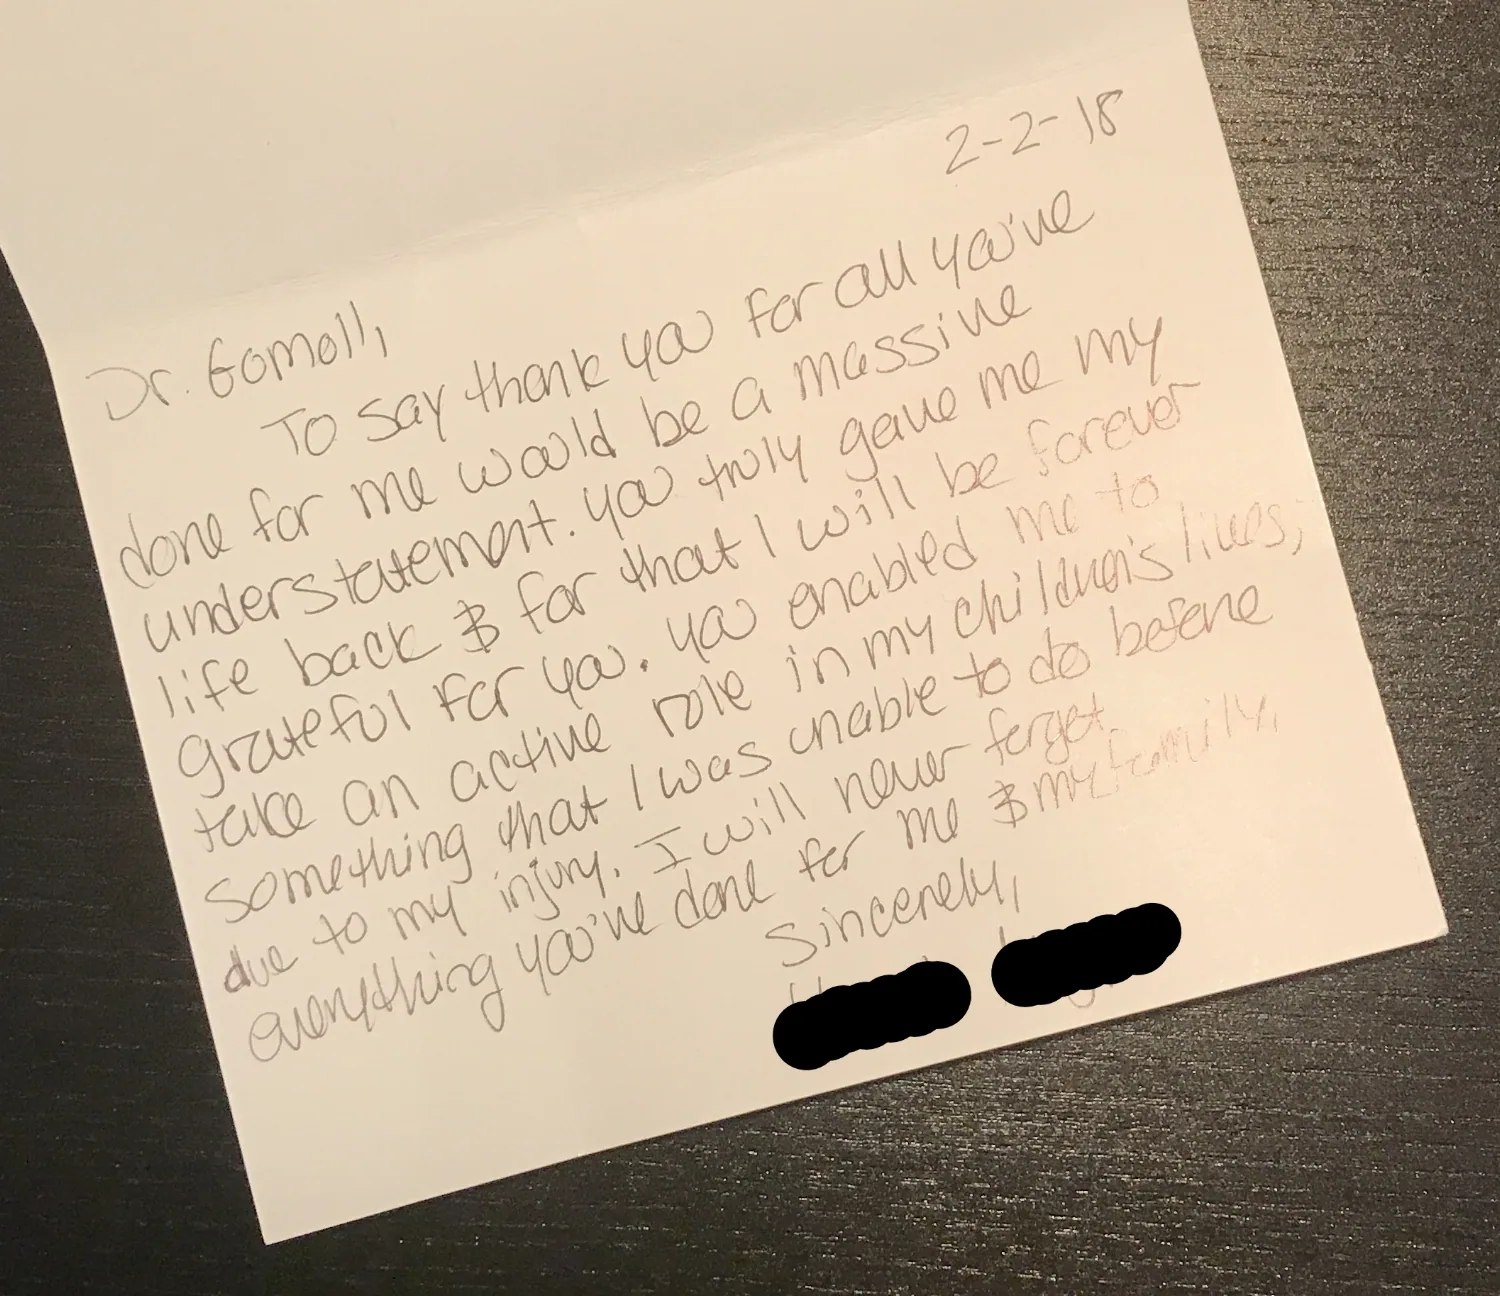 2-2-18
Dr. Gomoll,
To say thank you for all you've
done for me would be a massive
understatement. You truly gave me my
life back & for that I will be forever
grateful for you. You enabled me to
take an active role in my children's lives,
something that I was unable to do before
due to my injury. I will never forget
everything you've done for me & my family.
Sincerely,